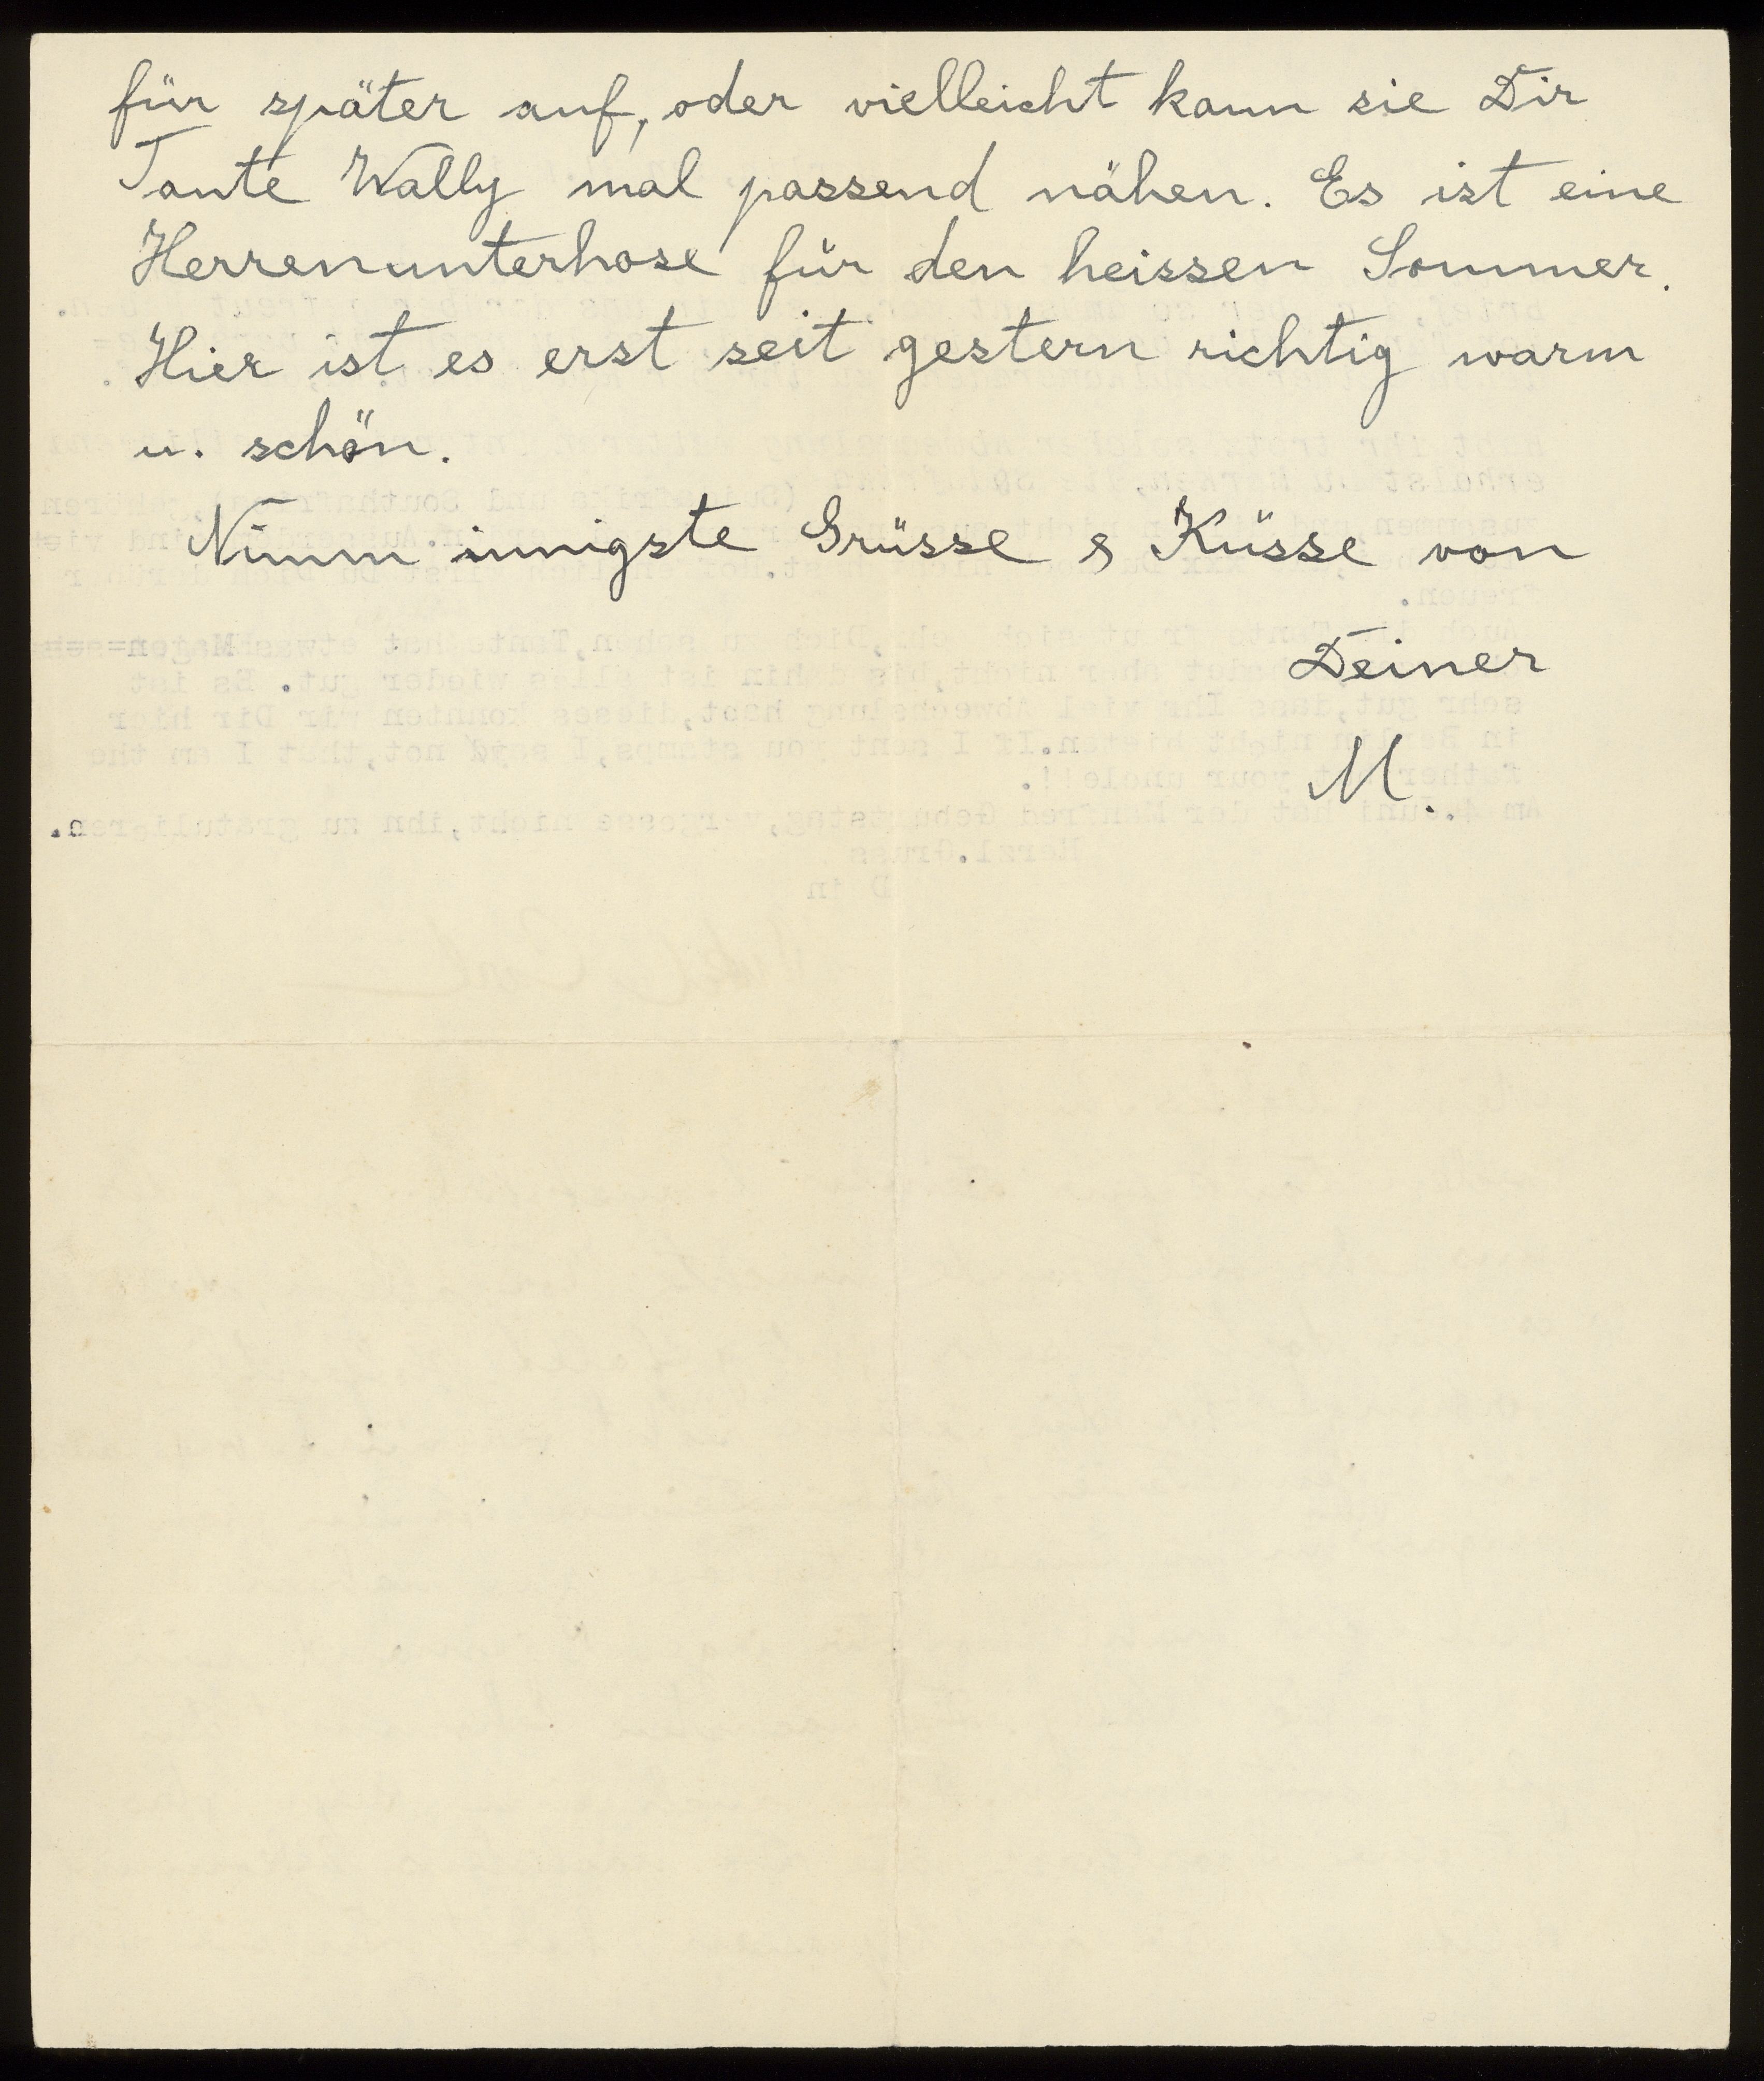 für später auf, oder vielleicht kann sie Dir
Tante Wally mal passend nähen. Es ist eine
Herrenunterhose für den heissen Sommer.
Hier ist es erst seit gestern richtig warm
u. schön.
Nimm innigste Grüsse & Küsse von
Deiner
M.